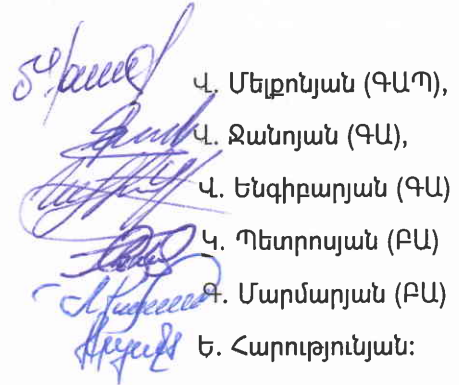 Վ. Մելքոնյան (ԳԱՊ),
Վ. Ջանոյան (ԳԱ),
Վ. Ենգիբարյան (ԳԱ)
Կ. Պետրոսյան (ԲԱ)
Գ. Մարմարյան (ԲԱ)
Ե. Հարությունյան: